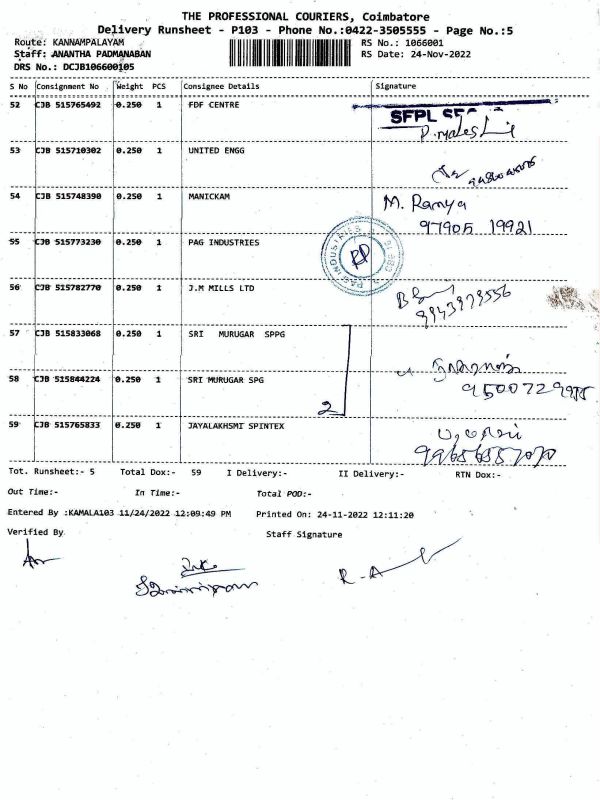 THE PROFESSIONAL COURIERS, Coimbatore
Delivery Runsheet - P103 - Phone No.:0422-3505555 - Page No.:5
Route: KANNAMPALAYAM RS No.: 1066001
Staff: ANANTHA PADMANABAN RS Date: 24-Nov-2022
DRS No.: DCJB106600105
S No Consignment No Weight PCS Consignee Details Signature
52 CJB 515765492 0.250 1 FDF CENTRE
SFPL
53 CJB 515710302 0.250 1 UNITED ENGG
54 CJB 515748390 0.250 1 MANICKAM M. Ramya
97905 19921
55 CJB 515773230 0.250 1 PAG INDUSTRIES
PAG INDUSTRIES
56 CJB 515782770 0.250 1 J.M MILLS LTD
9943979556
57 CJB 515833068 0.250 1 SRI MURUGAR SPPG
58 CJB 515844224 0.250 1 SRI MURUGAR SPG
2
59 CJB 515765833 0.250 1 JAYALAKHSMI SPINTEX
Tot. Runsheet:- 5 Total Dox:- 59 I Delivery:- II Delivery:- RTN Dox:-
Out Time:- In Time:- Total POD:-
Entered By :KAMALA103 11/24/2022 12:09:49 PM Printed On: 24-11-2022 12:11:20
Verified By Staff Signature
R-A